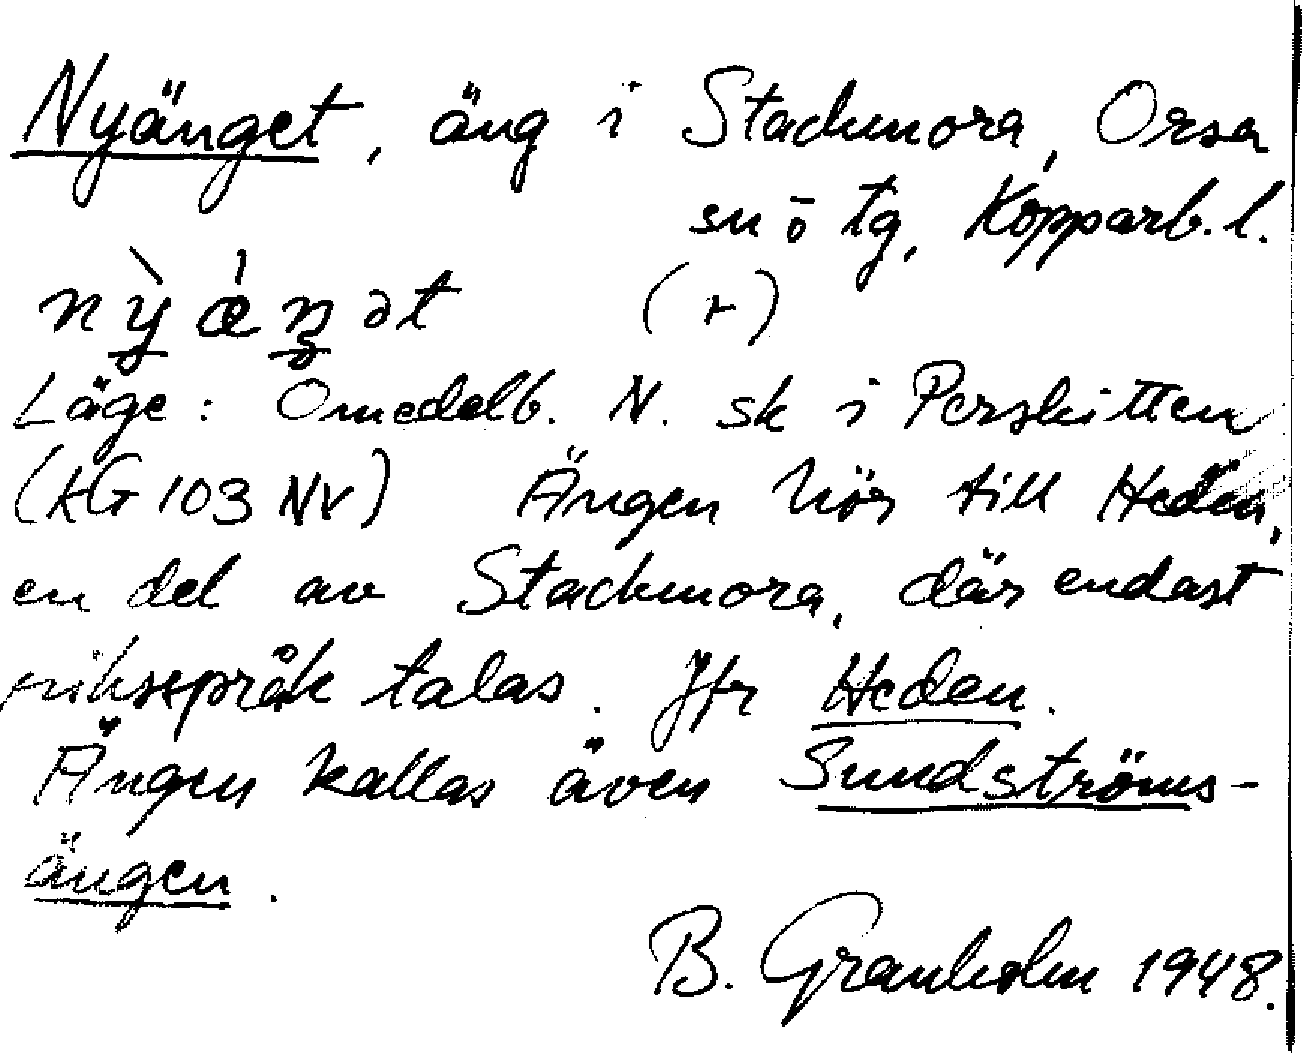 Nyänget, äng i Stackmora, Orsa
sn ö tg, Kopparb. l.
nỳǽŋət (r)
Läge: Omedelb. N. sk i Perskitten
(kG 103 NV) Ängen hör till Heden,
en del av Stackmora, där endast
riksspråk talas. Jfr Heden.
Ängen kallas även Sundströms-
ängen.
B. Granholm 1948.